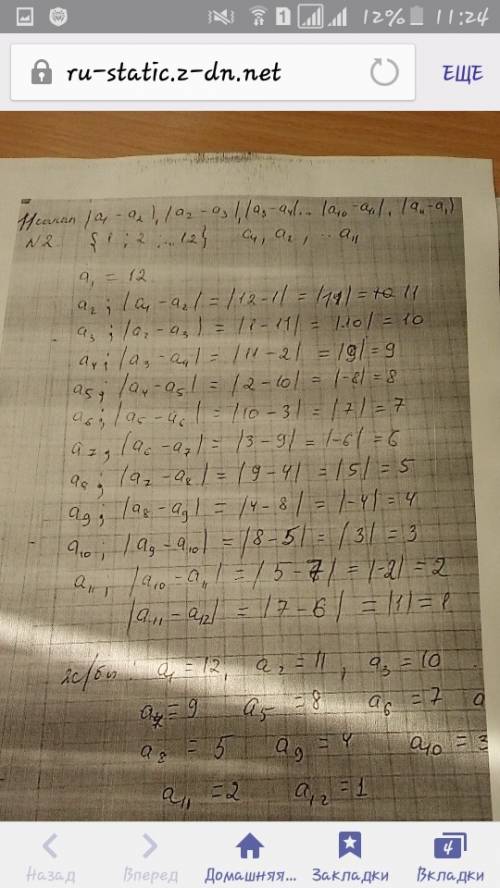 12% 11:24
ru-static.z-dn.net ЕЩЕ
|a1 - a2|, |a2 - a3|, |a3 - a4|.. |a10 - a11|, |a11 - a1|
N2. {1; 2, ...12} a1, a2, ... a11
a1 = 12
a2; |a1 - a2| = |12 - 1| = |11| = 11
a3; |a2 - a3| = |1 - 11| = |10| = 10
a4; |a3 - a4| = |11 - 2| = |9| = 9
a5; |a4 - a5| = |2 - 10| = |-8| = 8
a6; |a5 - a6| = |10 - 3| = |7| = 7
a7, |a6 - a7| = |3 - 9| = |-6| = 6
a8; |a7 - a8| = |9 - 4| = |5| = 5
a9; |a8 - a9| = |4 - 8| = |-4| = 4
a10; |a9 - a10| = |8 - 5| = |3| = 3
a11, |a10 - a11| = |5 - 7| = |-2| = 2
|a11 - a12| = |7 - 6| = |1| = 1
a1 = 12, a2 = 11, a3 = 10
a4 = 9 a5 = 8 a6 = 7 a
a8 = 5 a9 = 4 a10 = 3
a11 = 2 a12 = 1
Назад Вперед Домашняя... Закладки 4 Вкладки